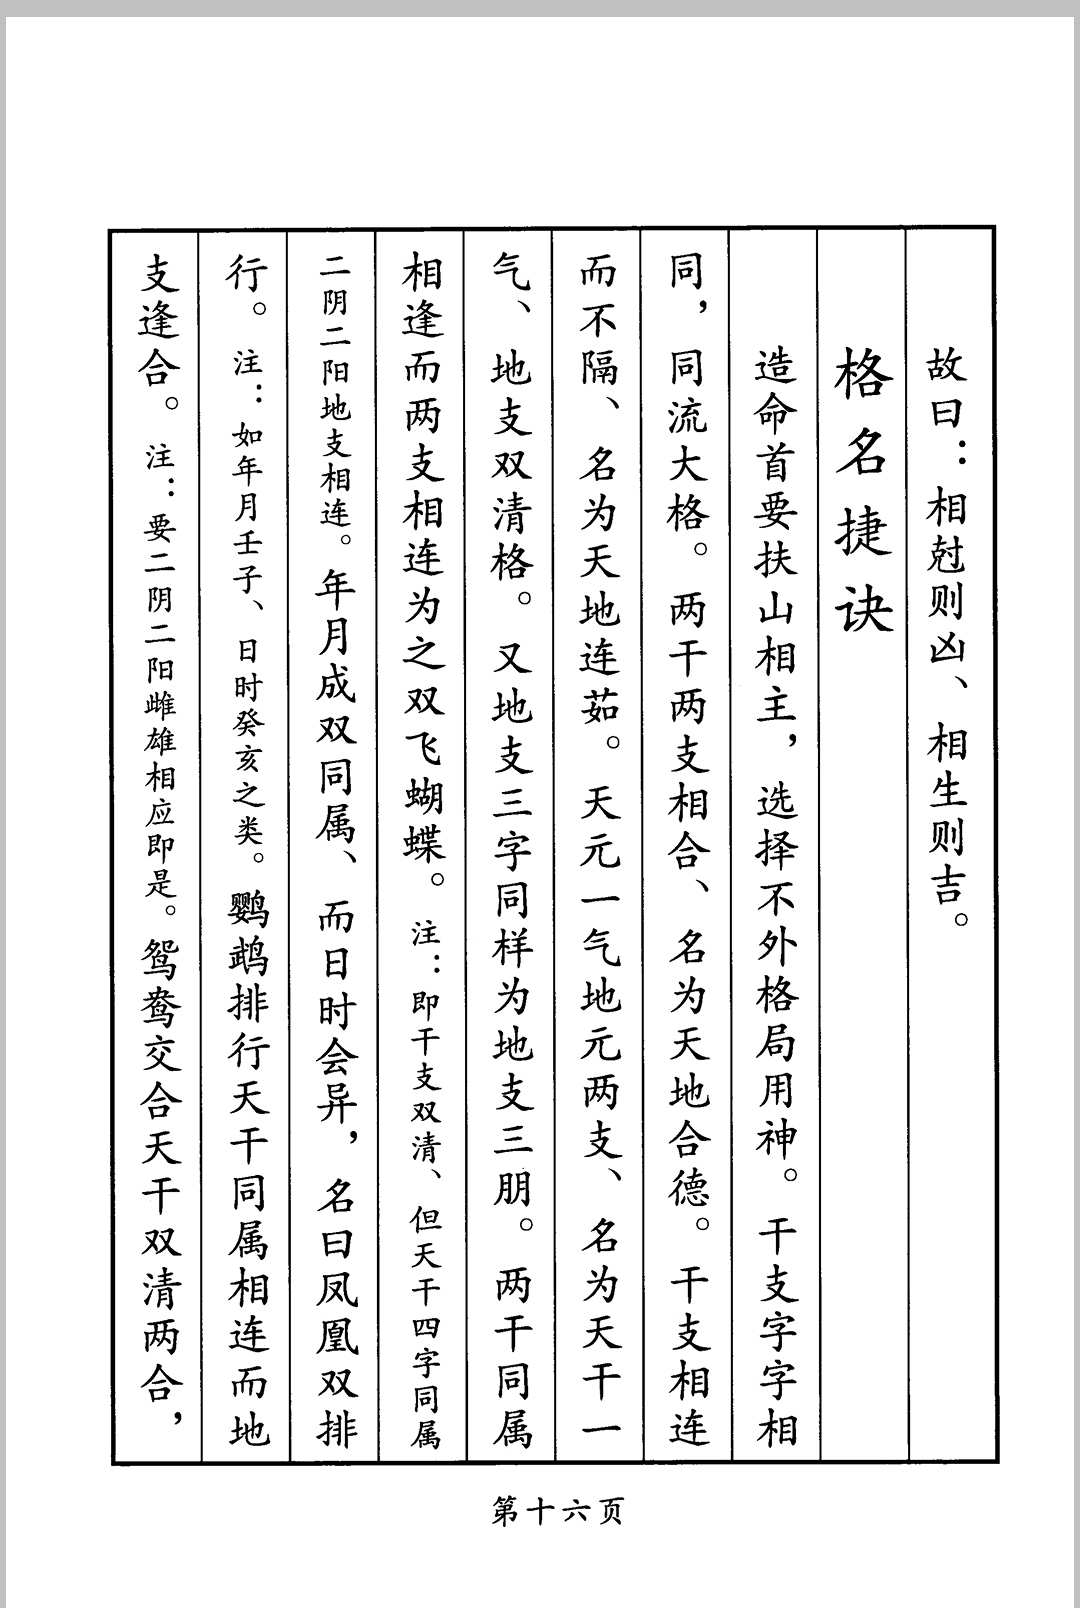 故曰：相尅则凶、相生则吉。
格名捷诀
造命首要扶山相主，选择不外格局用神。干支字字相
同，同流大格。两干两支相合、名为天地合德。干支相连
而不隔、名为天地连茹。天元一气地元两支、名为天干一
气、地支双清格。又地支三字同样为地支三朋。两干同属
相逢而两支相连为之双飞蝴蝶。注：即干支双清、但天干四字同属
二阴二阳地支相连。年月成双同属、而日时会异，名曰凤凰双排
行。注：如年月壬子、日时癸亥之类。鹦鹉排行天干同属相连而地
支逢合。注：要二阴二阳雌雄相应即是。鸳鸯交合天干双清两合，
第十六页